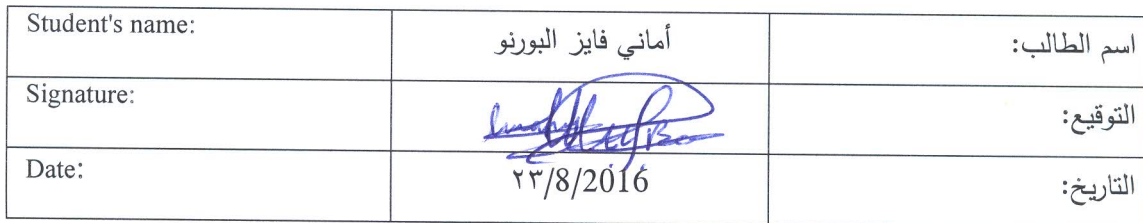 Student's name: أماني فايز البورنو اسم الطالب:
Signature: التوقيع:
Date: ٢٣/8/2016 التاريخ: